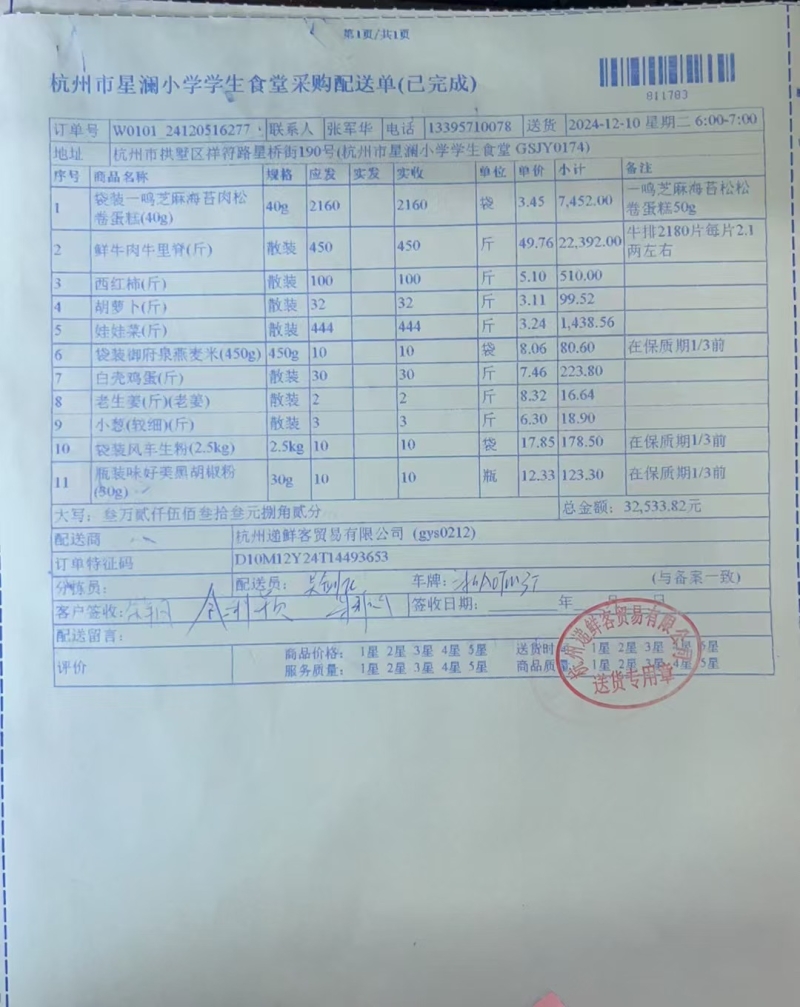 第1页/共1页
杭州市星澜小学学生食堂采购配送单(已完成)
811783
订单号 W0101_24120516277 联系人 张军华 电话 13395710078 送货 2024-12-10 星期二 6:00-7:00
地址 杭州市拱墅区祥符路星桥街190号(杭州市星澜小学学生食堂 GSJY0174)
序号 商品名称 规格 应发 实发 实收 单位 单价 小计 备注
1 袋装一鸣芝麻海苔肉松卷蛋糕(40g) 40g 2160 2160 袋 3.45 7,452.00 一鸣芝麻海苔松松卷蛋糕50g
2 鲜牛肉牛里脊(斤) 散装 450 450 斤 49.76 22,392.00 牛排2180片每片2.1两左右
3 西红柿(斤) 散装 100 100 斤 5.10 510.00
4 胡萝卜(斤) 散装 32 32 斤 3.11 99.52
5 娃娃菜(斤) 散装 444 444 斤 3.24 1,438.56
6 袋装御府泉燕麦米(450g) 450g 10 10 袋 8.06 80.60 在保质期1/3前
7 白壳鸡蛋(斤) 散装 30 30 斤 7.46 223.80
8 老生姜(斤)(老姜) 散装 2 2 斤 8.32 16.64
9 小葱(较细)(斤) 散装 3 3 斤 6.30 18.90
10 袋装风车生粉(2.5kg) 2.5kg 10 10 袋 17.85 178.50 在保质期1/3前
11 瓶装味好美黑胡椒粉(30g) 30g 10 10 瓶 12.33 123.30 在保质期1/3前
大写: 叁万贰仟伍佰叁拾叁元捌角贰分 总金额: 32,533.82元
配送商 杭州递鲜客贸易有限公司 (gys0212)
订单特征码 D10M12Y24T14493653
分拣员: 配送员: 车牌: (与备案一致)
客户签收: 签收日期: 年 月 日
配送留言:
评价 商品价格: 1星 2星 3星 4星 5星 送货时 1星 2星 3星 4星 5星
服务质量: 1星 2星 3星 4星 5星 商品质量: 1星 2星 3星 4星 5星
杭州递鲜客贸易有限公司
送货专用章